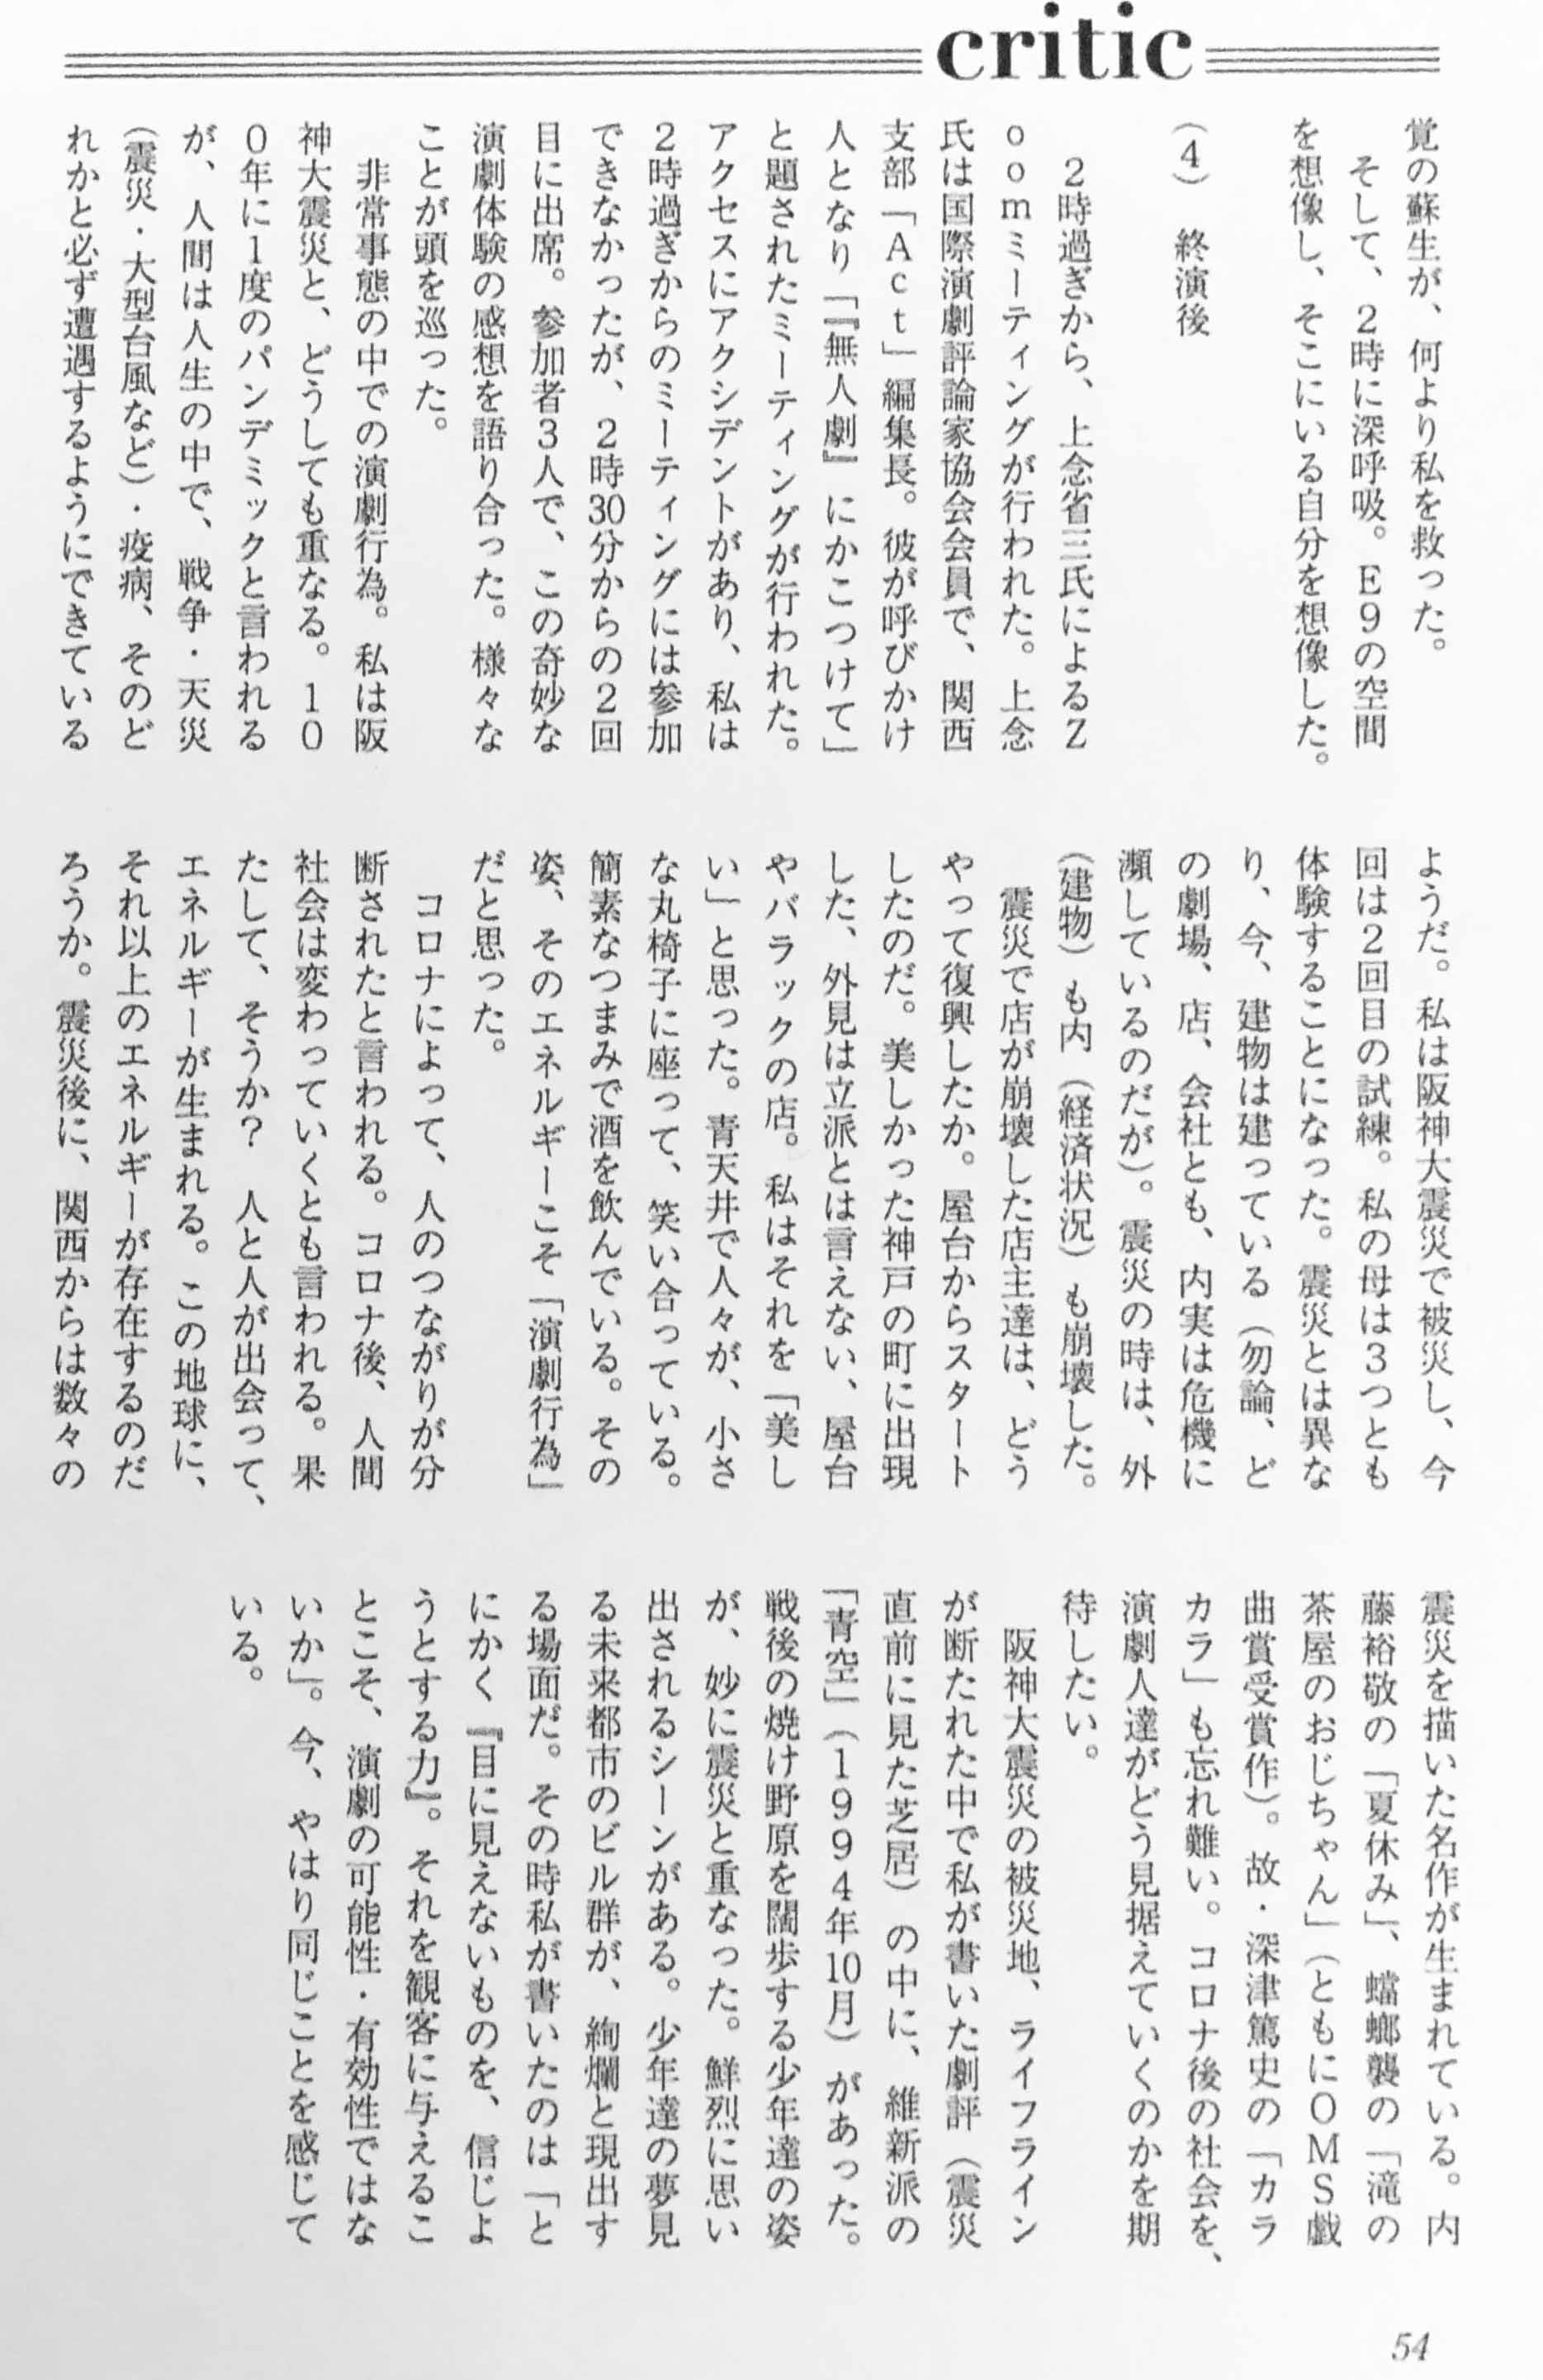 critic
覚の蘇生が、何より私を救った。
そして、2時に深呼吸。E9の空間
を想像し、そこにいる自分を想像した。
(4) 終演後
2時過ぎから、上念省三氏によるZ
oomミーティングが行われた。上念
氏は国際演劇評論家協会会員で、関西
支部「Act」編集長。彼が呼びかけ
人となり「『無人劇』にかこつけて」
と題されたミーティングが行われた。
アクセスにアクシデントがあり、私は
2時過ぎからのミーティングには参加
できなかったが、2時30分からの2回
目に出席。参加者3人で、この奇妙な
演劇体験の感想を語り合った。様々な
ことが頭を巡った。
非常事態の中での演劇行為。私は阪
神大震災と、どうしても重なる。10
0年に1度のパンデミックと言われる
が、人間は人生の中で、戦争・天災
(震災・大型台風など)・疫病、そのど
れかと必ず遭遇するようにできている
ようだ。私は阪神大震災で被災し、今
回は2回目の試練。私の母は3つとも
体験することになった。震災とは異な
り、今、建物は建っている(勿論、ど
の劇場、店、会社とも、内実は危機に
瀕しているのだが)。震災の時は、外
(建物)も内(経済状況)も崩壊した。
震災で店が崩壊した店主達は、どう
やって復興したか。屋台からスタート
したのだ。美しかった神戸の町に出現
した、外見は立派とは言えない、屋台
やバラックの店。私はそれを「美し
い」と思った。青天井で人々が、小さ
な丸椅子に座って、笑い合っている。
簡素なつまみで酒を飲んでいる。その
姿、そのエネルギーこそ「演劇行為」
だと思った。
コロナによって、人のつながりが分
断されたと言われる。コロナ後、人間
社会は変わっていくとも言われる。果
たして、そうか? 人と人が出会って、
エネルギーが生まれる。この地球に、
それ以上のエネルギーが存在するのだ
ろうか。震災後に、関西からは数々の
震災を描いた名作が生まれている。内
藤裕敬の「夏休み」、蟷螂襲の「滝の
茶屋のおじちゃん」(ともにOMS戯
曲賞受賞作)。故・深津篤史の「カラ
カラ」も忘れ難い。コロナ後の社会を、
演劇人達がどう見据えていくのかを期
待したい。
阪神大震災の被災地、ライフライン
が断たれた中で私が書いた劇評(震災
直前に見た芝居)の中に、維新派の
「青空」(1994年10月)があった。
戦後の焼け野原を闊歩する少年達の姿
が、妙に震災と重なった。鮮烈に思い
出されるシーンがある。少年達の夢見
る未来都市のビル群が、絢爛と現出す
る場面だ。その時私が書いたのは「と
にかく『目に見えないものを、信じよ
うとする力』。それを観客に与えるこ
とこそ、演劇の可能性・有効性ではな
いか」。今、やはり同じことを感じて
いる。
54